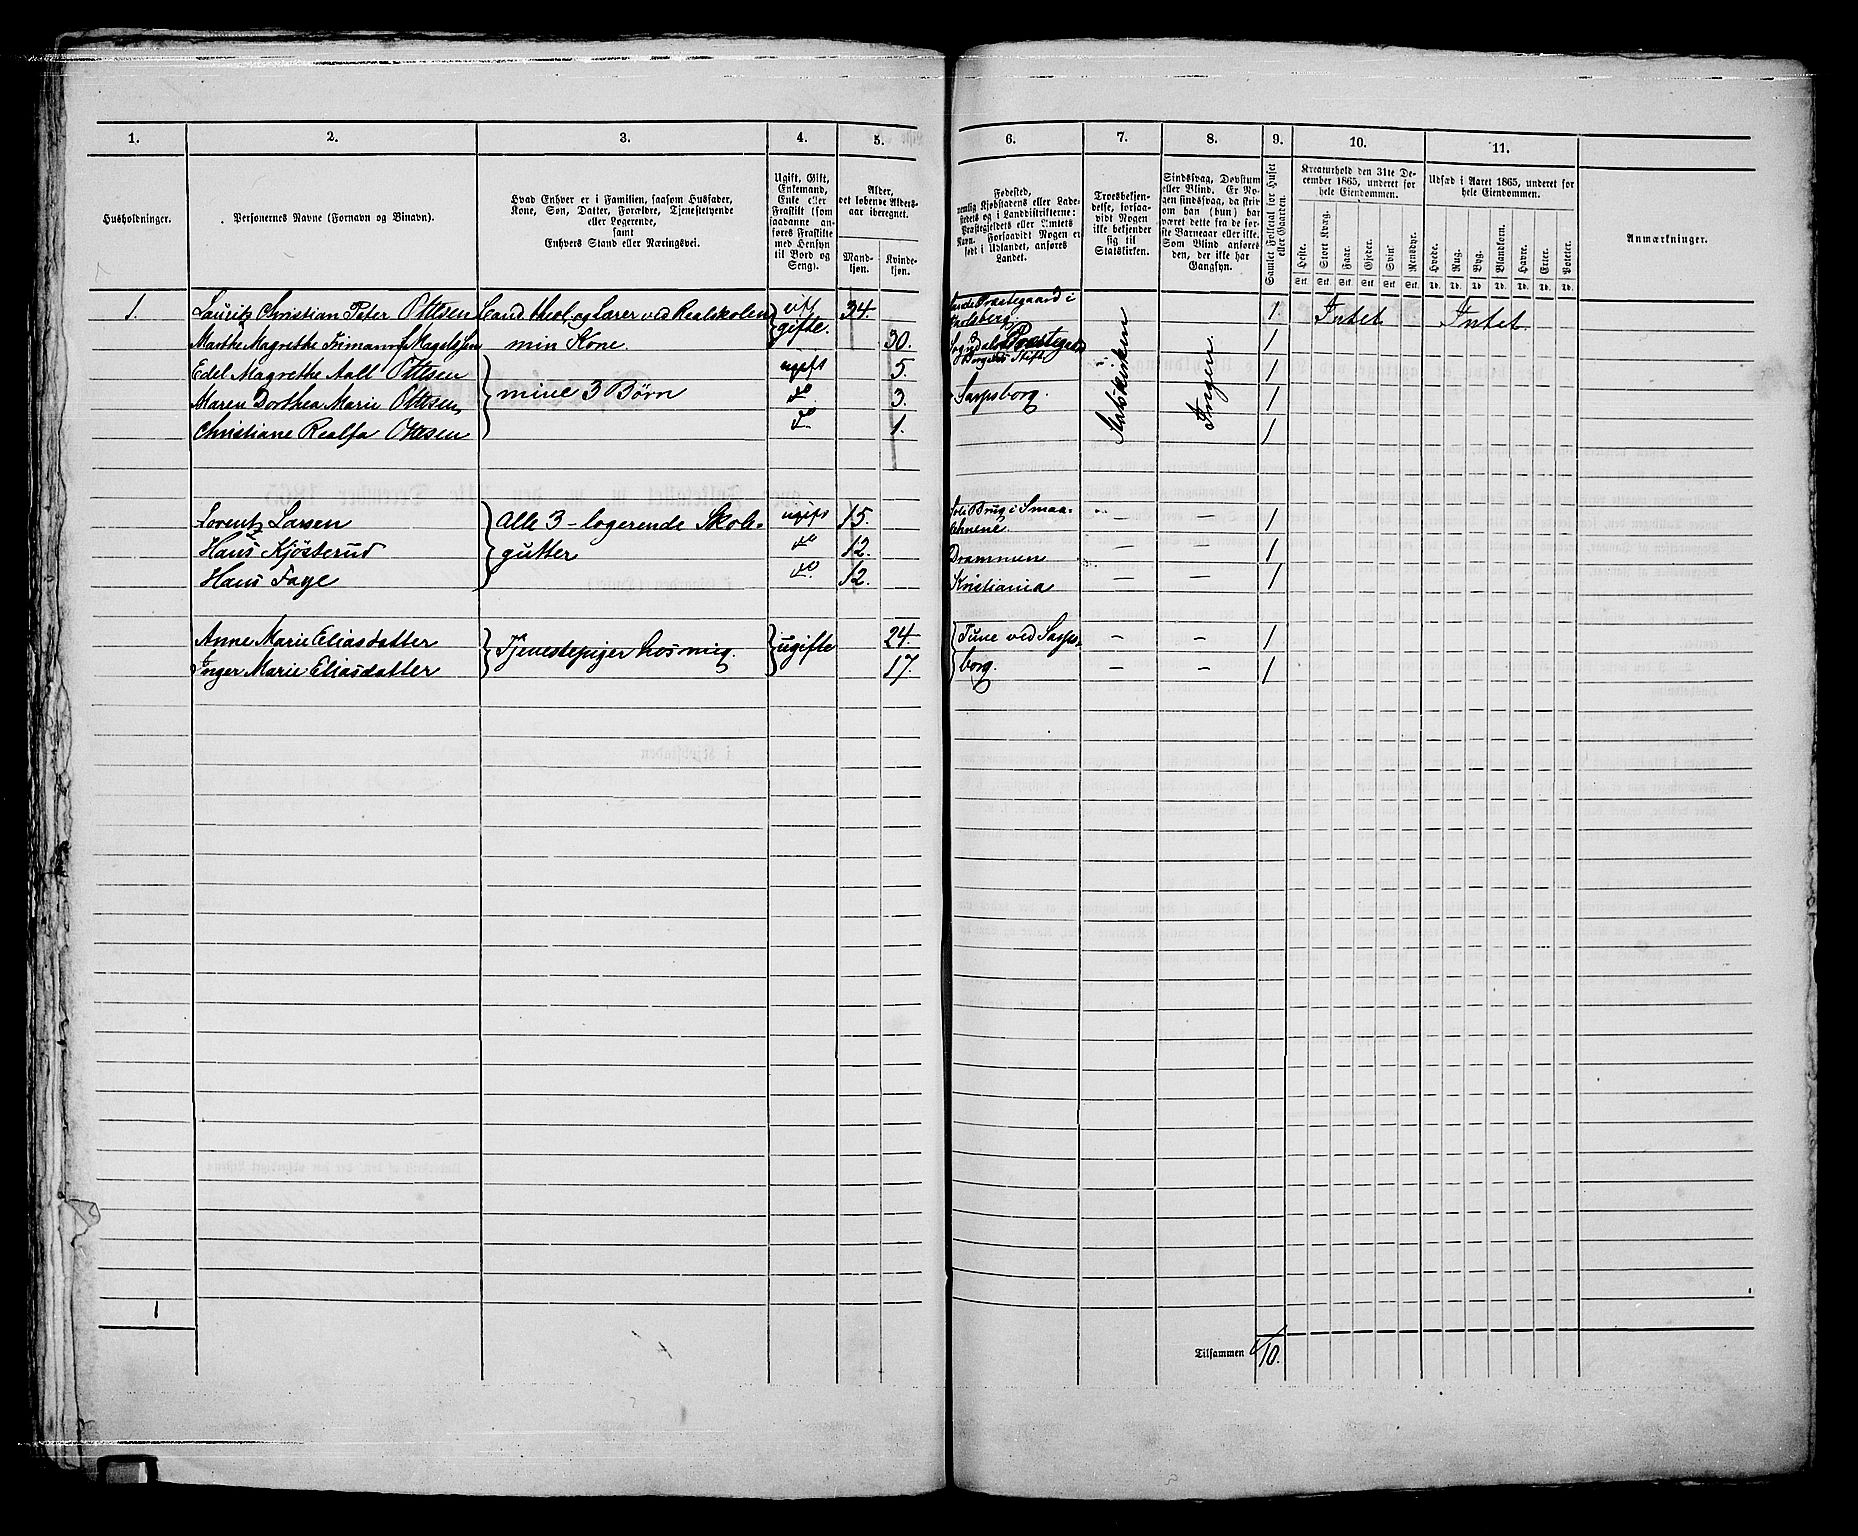 1.
2.
3.
4.
5.
Husholdninger.
Personernes Navne (Fornavn og Binavn).
Hvad Enhver er i Familien, saasom Husfader,
Kone, Søn, Datter, Forældre, Tjenestetyende
eller Logerende,
samt
Enhvers Stand eller Næringsvei.
Ugift, Gift,
Enkemand,
Enke eller
Fraskilt (som
saadanne an-
føres Fraskilte
med Hensyn
til Bord og
Seng).
Alder,
det løbende Alders-
aar iberegnet.
Mand-
kjøn.
Kvinde-
kjøn.
1. Lauritz Christian Peter Ottesen Cand. theol. og Lærer ved Realskolen gift 34.
Marthe Magrethe Irmann f. Magelssen min Kone. gifte. 30.
Edel Magrethe Aall Ottesen ugift 5.
Maren Dorthea Marie Ottesen mine 3 Børn do. 3.
Christiane Realfa Ottesen do 1.
Lorentz Larsen Alle 3 - logerende Skole- ugift 15.
Hans Kjøsterud gutter do 12.
Hans Faye do. 12.
Anne Marie Eliasdatter 24.
Tjenestepiger hos mig. ugifte
Inger Marie Eliasdatter 17.
1
6.
7.
8.
9.
10.
11.
Fødested,
nemlig Kjøbstadens eller Lade-
stedets og i Landdistrikterne:
Præstegjeldets eller Amtets
Navn. Forsaavidt Nogen er
født i Udlandet, anføres
Landet.
Troesbekjen-
delse, forsaa-
vidt Nogen
ikke bekjender
sig til
Statskirken.
Sindssvag, Døvstum
eller Blind. Er No-
gen sindssvag, da skriv
om han (hun) har
været dette fra de før-
ste Barneaar eller ikke.
Som Blind anføres
den, der ikke har
Gangsyn.
Samlet Folketal for Huset
eller Gaarden.
Kreaturhold den 31te De-
cember 1865, underet for
hele Eiendommen.
Heste.
Stort Kvæg.
Faar.
Gjeder.
Svin.
Rensdyr.
Stk. Stk. Stk. Stk. Stk. Stk.
Udsæd i Aaret 1865, underet for
hele Eiendommen.
Hvede.
Rug.
Byg.
Blandkorn.
Havre.
Erter.
Poteter.
Td. Td. Td. Td. Td. Td. Td.
Anmærkninger.
Præstegaard i 1 Intet Intet
Sogndals Præstegaard 1
Stift 1
Sarpsborg. Statskirken Ingen. 1
1
Brug i Smaa-
lehnene. — — 1
Drammen — — 1
Kristiania — — 1
Tune ved Sarps- — — 1
borg. — — 1
Tilsammen 10.